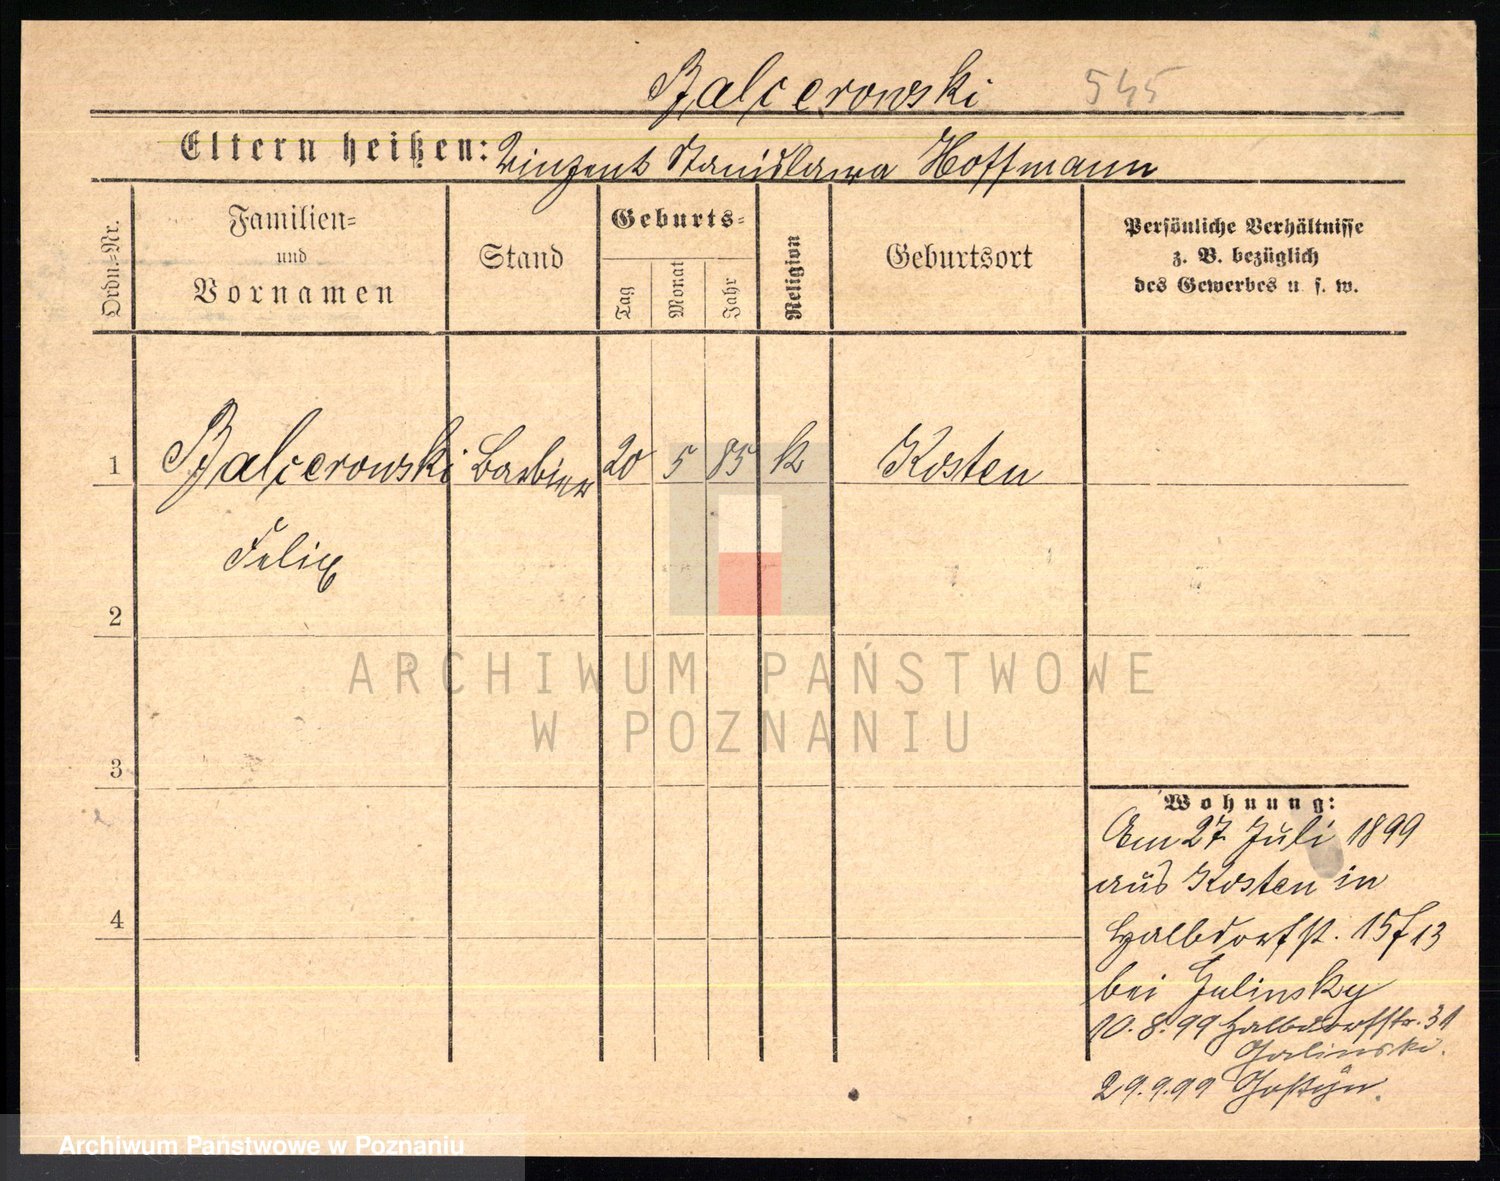 Balcerowski 545
Eltern heißen: Vinzent Stanislawa Hoffmann
Ordn.-Nr.
Familien-
und
Vornamen
Stand
Geburts-
Tag
Monat
Jahr
Religion
Geburtsort
Persönliche Verhältnisse
z. B. bezüglich
des Gewerbes u. s. w.
1 Balcerowski Barbier 20 5 85 k Kosten
Felix
2
3
4
Wohnung:
Am 27 Juli 1899
aus Kosten in
Halbdorfst. 15 f 13
bei Galinsky
10.8.99 Halbdorfstr. 31
Galinski.
29.9.99 Gostyn.
ARCHIWUM PAŃSTWOWE
W POZNANIU
Archiwum Państwowe w Poznaniu